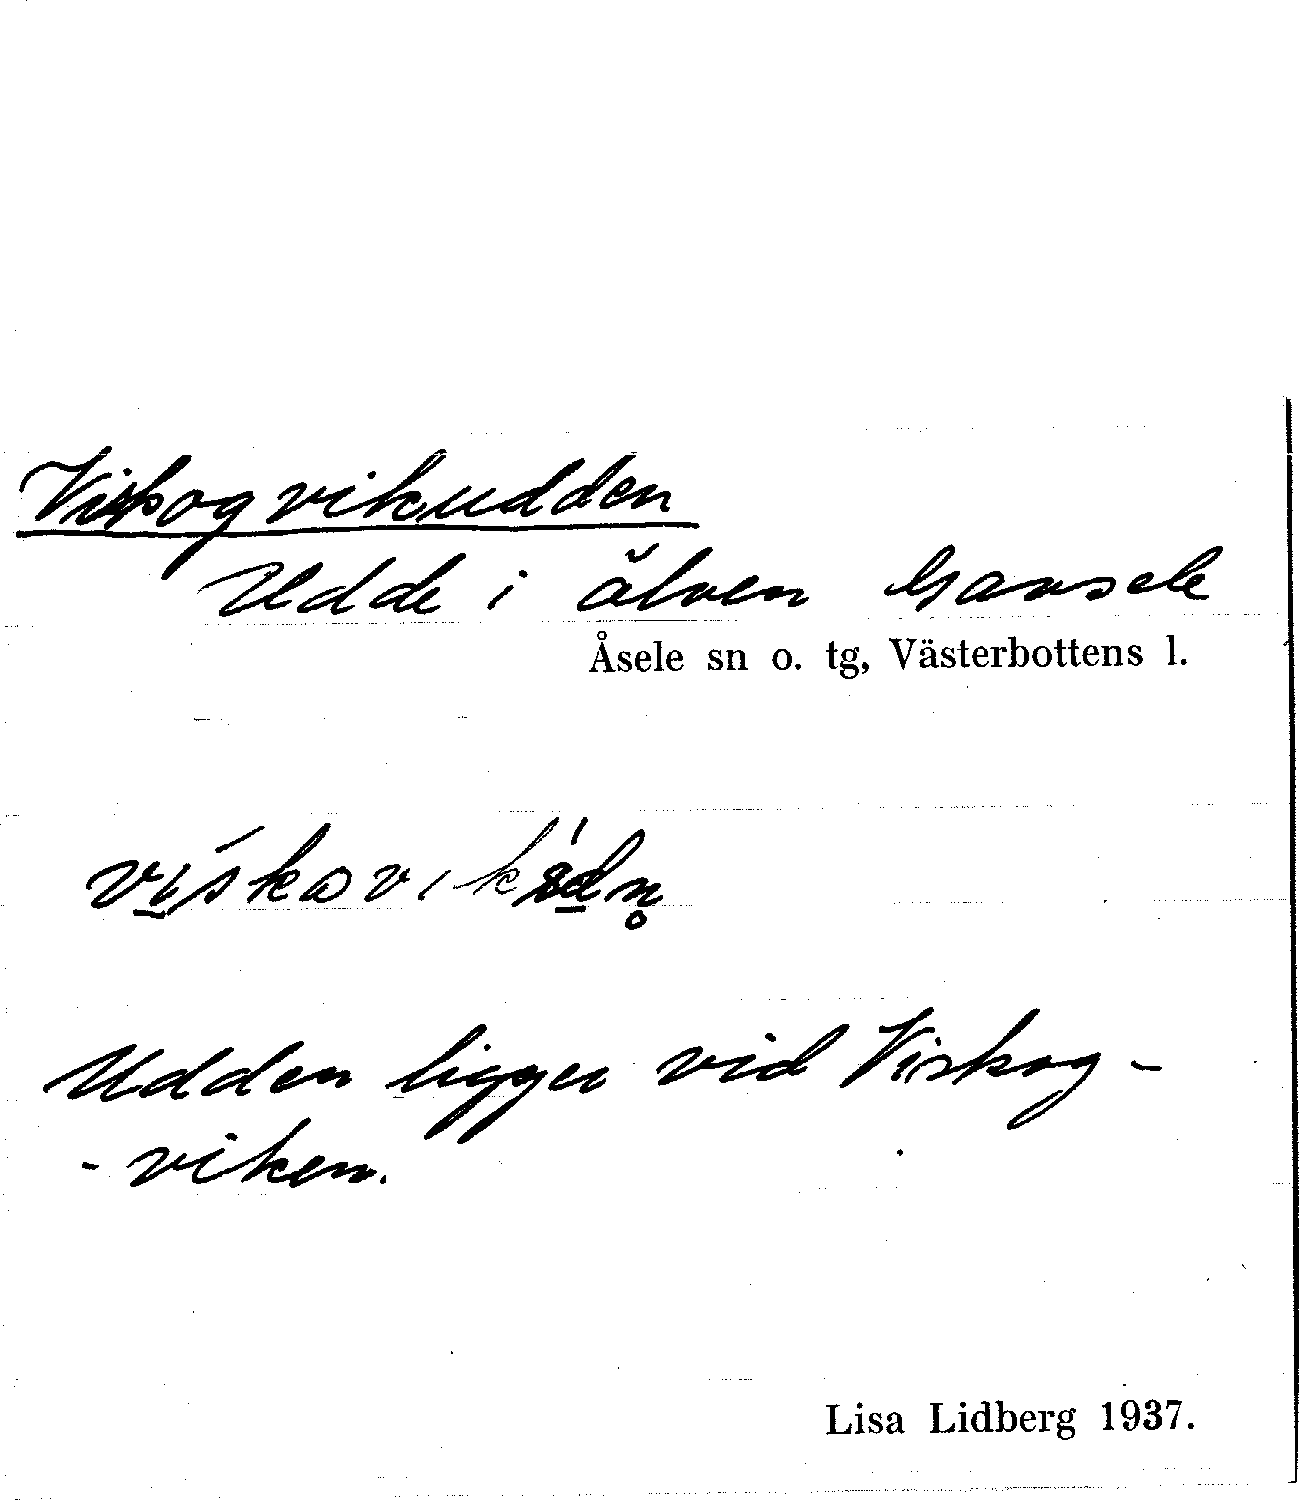 Viskogvikudden
Udde i älven Gavsele
Åsele sn o. tg, Västerbottens l.
Udden ligger vid Viskog-
- viken.
Lisa Lidberg 1937.